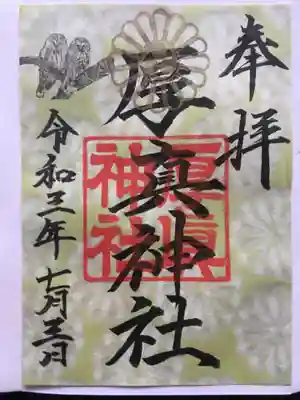 奉拝
厚真神社
厚眞
神社
令和三年七月三日